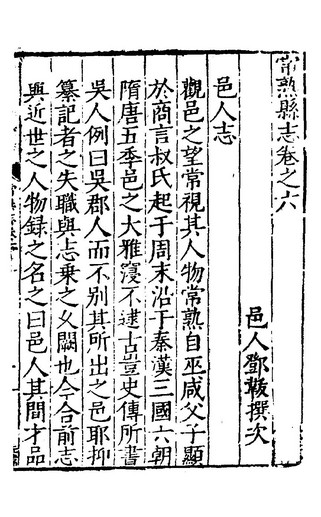 常熟縣志卷之六
邑人鄧韍撰次
邑人志
觀邑之望常視其人物常熟自巫咸父子顯
於商言叔氏起于周末沿于秦漢三國六朝
隋唐五季邑之大雅寖不逮古豈史傳所書
吳人例曰吳郡人而不別其所出之邑耶抑
纂記者之失職與志乗之攵闕也今合前志
與近世之人物録之名之曰邑人其間才品